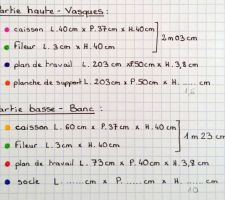 artie haute - Vasques :
caisson L. 40 cm x P. 37 cm x H. 40 cm
fileur L. 3 cm x H. 40 cm
2 m 03 cm
plan de travail L. 203 cm x P. 50 cm x H. 3,8 cm
planche de support L. 203 cm x P. 50 cm x H. ...... cm
artie basse - Banc :
caisson L. 60 cm x P. 37 cm x H. 40 cm
fileur L. 3 cm x H. 40 cm
1 m 23 cm
plan de travail L. 73 cm x P. 40 cm x H. 3,8 cm
socle L. ........ cm x P. ...... cm x H. ...... cm
10